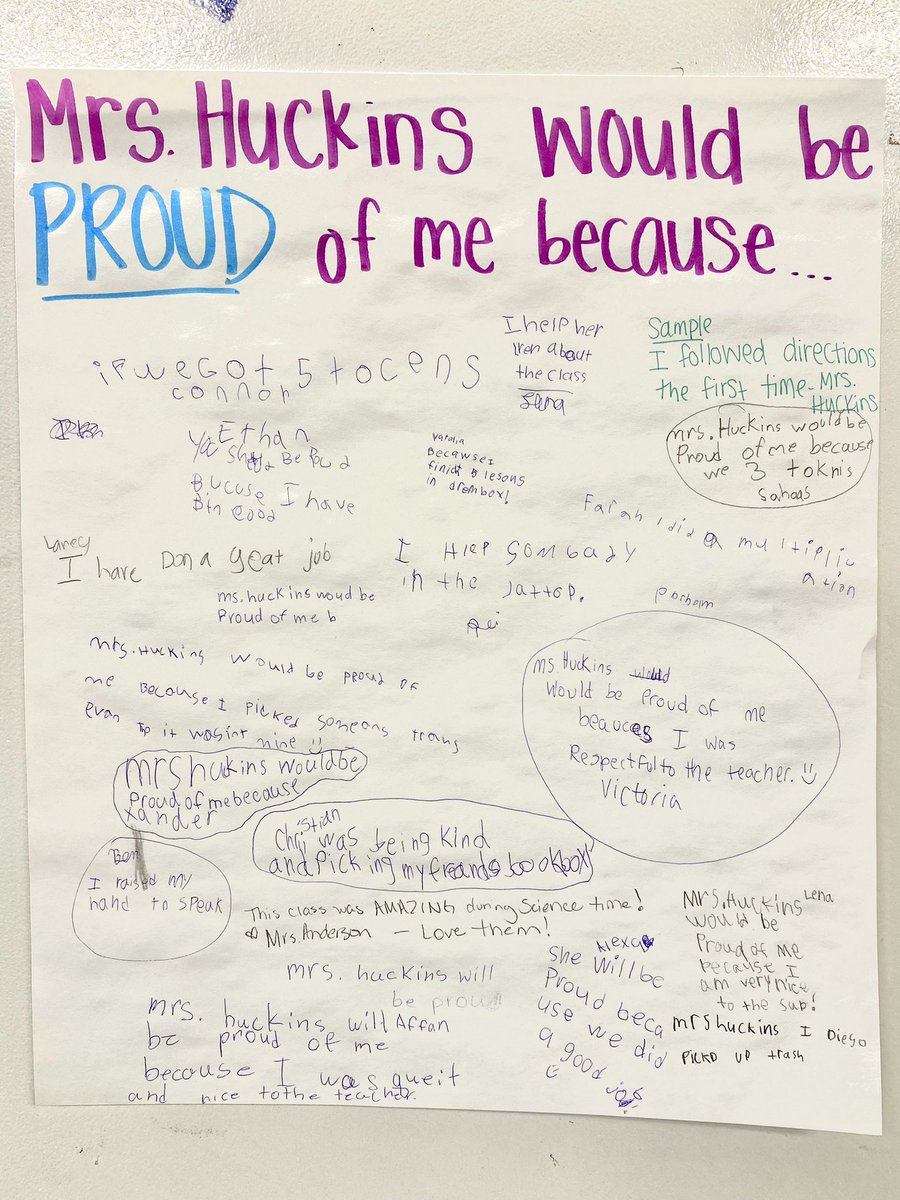 Mrs. Huckins would be
PROUD of me because...
I help her
lren about
the class
Sena
Sample
I followed directions
the first time-Mrs.
Huckins
iF we Got 5 tocens
connor
mrs. Huckins would be
Proud of me because
we 3 toknis
Sahaas
Ethan
Be Poud
Bucuse I have
Bin Good
Becawse I
finict 5 lesons
in drembox!
Farah I did a multiplic
ation
Laney
I have Don a geat job
I HleP Sombady
in the Jattop.
ms.huckins woud be
Proud of me b
mrs.Huckins would be proud of
me Becouse I Picked someons trans
evan it wasint mine
ms Huckins
would be Proud of me
beauces I was
Respectful to the teacher.
Victoria
mrs huckins would be
Proud of me because
xander
Christian was being Kind
and Picking my freands bookbox
Ben
I raised my
hand to speak
This class was AMAZING during Science time!
Mrs. Anderson - Love them!
Mrs.Huckins Lena
would be
Proud of me
because I
am very nice
to the sub!
Alexa
She Will be
Proud beca
use we did
a good job
mrs. huckins will
be proud
mrs. huckins will Affan
be proud of me
because I was queit
and nice to the teacher.
mrs huckins I Diego
PickD up trash